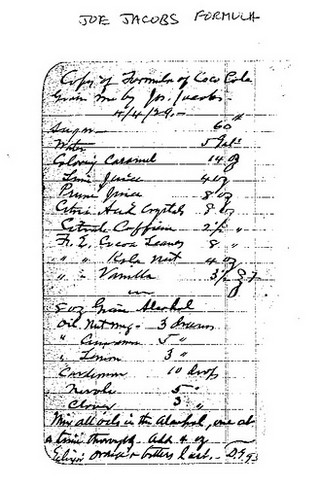 JOE JACOBS FORMULA
Copy of Formula of Coco Cola
Given me by Jos. Jacobs -
4/4/29 -
Sugar 60 #
Water 5 Gals
Coloring Caramel 14 oz
Lime Juice 4 oz
Prune Juice 8 oz
Citric Acid Crystals 8 oz
Citrate Caffein 2½ "
Fl. E. Cocoa Leaves 8 "
" " Kola Nut 4 oz
" " Vanilla 3½
8 oz Grain Alcohol
Oil Nutmeg - 3 drams
" Cinnamon 5 "
" Lemon 3 "
Cardamon 10 drops
Neroli 5 "
Cloves 3 "
Mix all oils in the Alcohol, one at
a time thoroughly. Add 4 oz
Elixir Orange bitters last. -